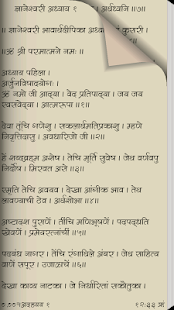 ज्ञानेश्वरी अध्याय १
॥ ज्ञानेश्वरी भावार्थदीपिका अध्याय
॥ ॐ श्री परमात्मने नमः ॥
अध्याय पहिला ।
अर्जुनविषादयोगः ।
ॐ नमो जी आद्या । वेद प्रतिपाद्या । जय जय
स्वसंवेद्या । आत्मरूपा ॥ १ ॥
देवा तूंचि गणेशु । सकलार्थमतिप्रकाशु । म्हणे
निवृत्तिदासु । अवधारिजो जी ॥ २ ॥
हें शब्दब्रह्म अशेष । तेचि मूर्ति सुवेष । जेथ वर्णवपु
निर्दोष । मिरवत असे ॥ ३ ॥
स्मृति तेचि अवयव । देखा आंगीक भाव । तेथ
लावण्याची ठेव । अर्थशोभा ॥ ४ ॥
अष्टादश पुराणें । तींचि मणिभूषणें । पदपद्धति
खेवणें । प्रमेयरत्नांचीं ॥ ५ ॥
पदबंध नागर । तेंचि रंगाथिलें अंबर । जेथ साहित्य
वाणें सपूर । उजाळाचें ॥ ६ ॥
देखा काव्य नाटका । जे निर्धारितां सकौतुका ।